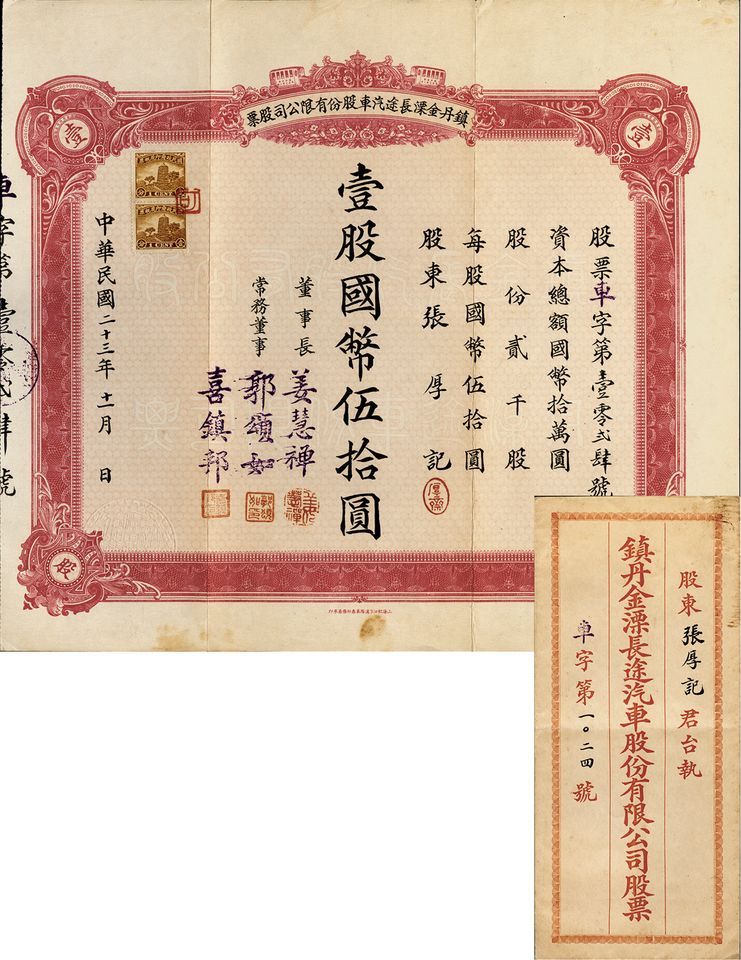 鎮丹金溧長途汽車股份有限公司股票
壹
壹
股票車字第壹零弍肆號
資本總額國幣拾萬圓
股份貳千股
每股國幣伍拾圓
股東張厚記
壹股國幣伍拾圓
董事長 姜慧禅
常務董事 郭頌如
喜鎮邦
1 CENT
1 CENT
中華民國二十三年十一月 日
車字第壹零弍肆號
股
股東張厚記君台執
鎮丹金溧長途汽車股份有限公司股票
車字第一〇二四號